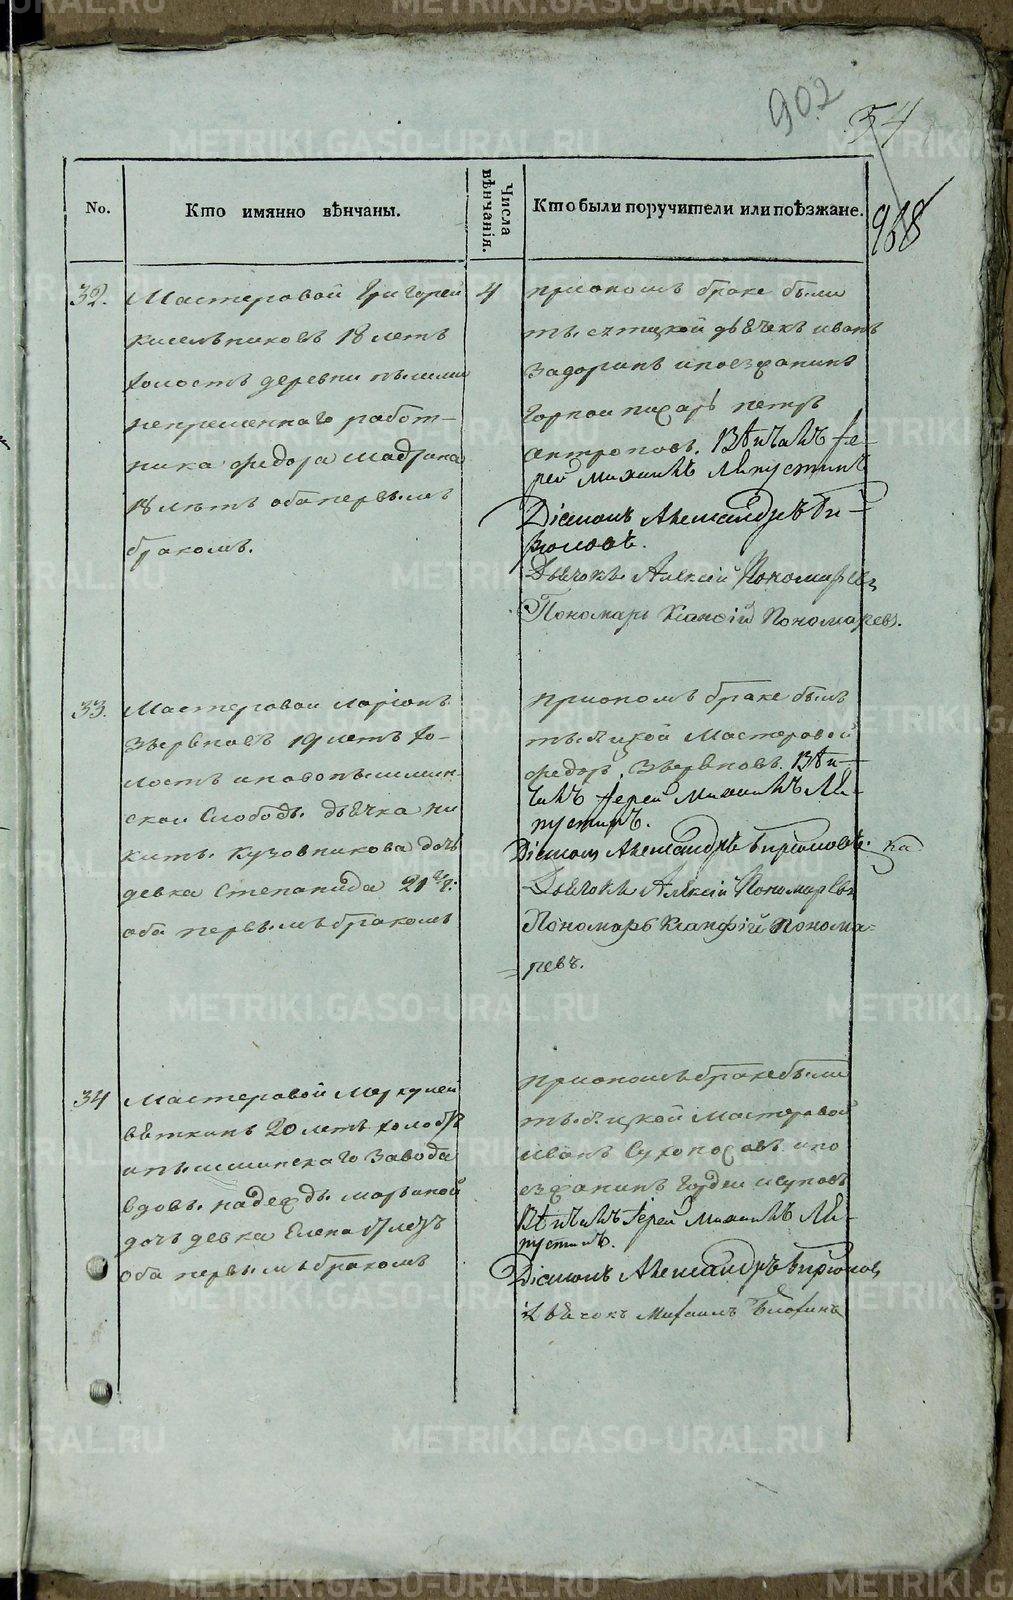 902
54
968
No.
Кто имянно вѣнчаны.
Числа вѣнчанія.
Кто были поручители или поѣзжане.
32.
Мастеровой Григорей
18 летъ
холостъ деревни
непременнаго работ-
ника Федора
18 летъ оба первымъ
бракомъ.
4
приономъ браке были
дьячекъ иванъ
Задоринъ ипоезжанинъ
Горной писарь петръ
антроповъ. Вѣнчалъ Іе-
рей Михаилъ Ляпустинъ
Діаконъ Александръ Би-
рюковъ.
Дьячокъ Алексій Пономаревъ
Пономарь Ксанфій Пономаревъ.
33.
Мастеровой Ларіонъ
Зверевковъ 19 летъ хо-
лостъ иновопышмин-
ской Слободы дьячка ни
киты Кузовникова дочь
девка Степанида 21
оба первымъ бракомъ
приономъ браке былъ
Мастеровой
Федоръ Зверевковъ. Вѣн-
чалъ Іерей Михаилъ Ля-
пустинъ.
Діаконъ Александръ Бирюковъ.
Дьячокъ Алексій Пономаревъ
Пономарь Ксанфій Понома-
ревъ.
34
Мастеровой Меркулей
вяткинъ 20 летъ холостъ
ипышминскаго Завода
вдовы надежды
дочь девка Елена 17 летъ
оба первымъ бракомъ
приономъ браке были
Мастеровой
Иванъ Сухоносовъ ипо
езжанинъ Гордей исуповъ
Вѣнчалъ Іерей Михаилъ Ля-
пустинъ.
Діаконъ Александръ Бирюковъ
Дьячокъ Михаилъ
METRIKI.GASO-URAL.RU